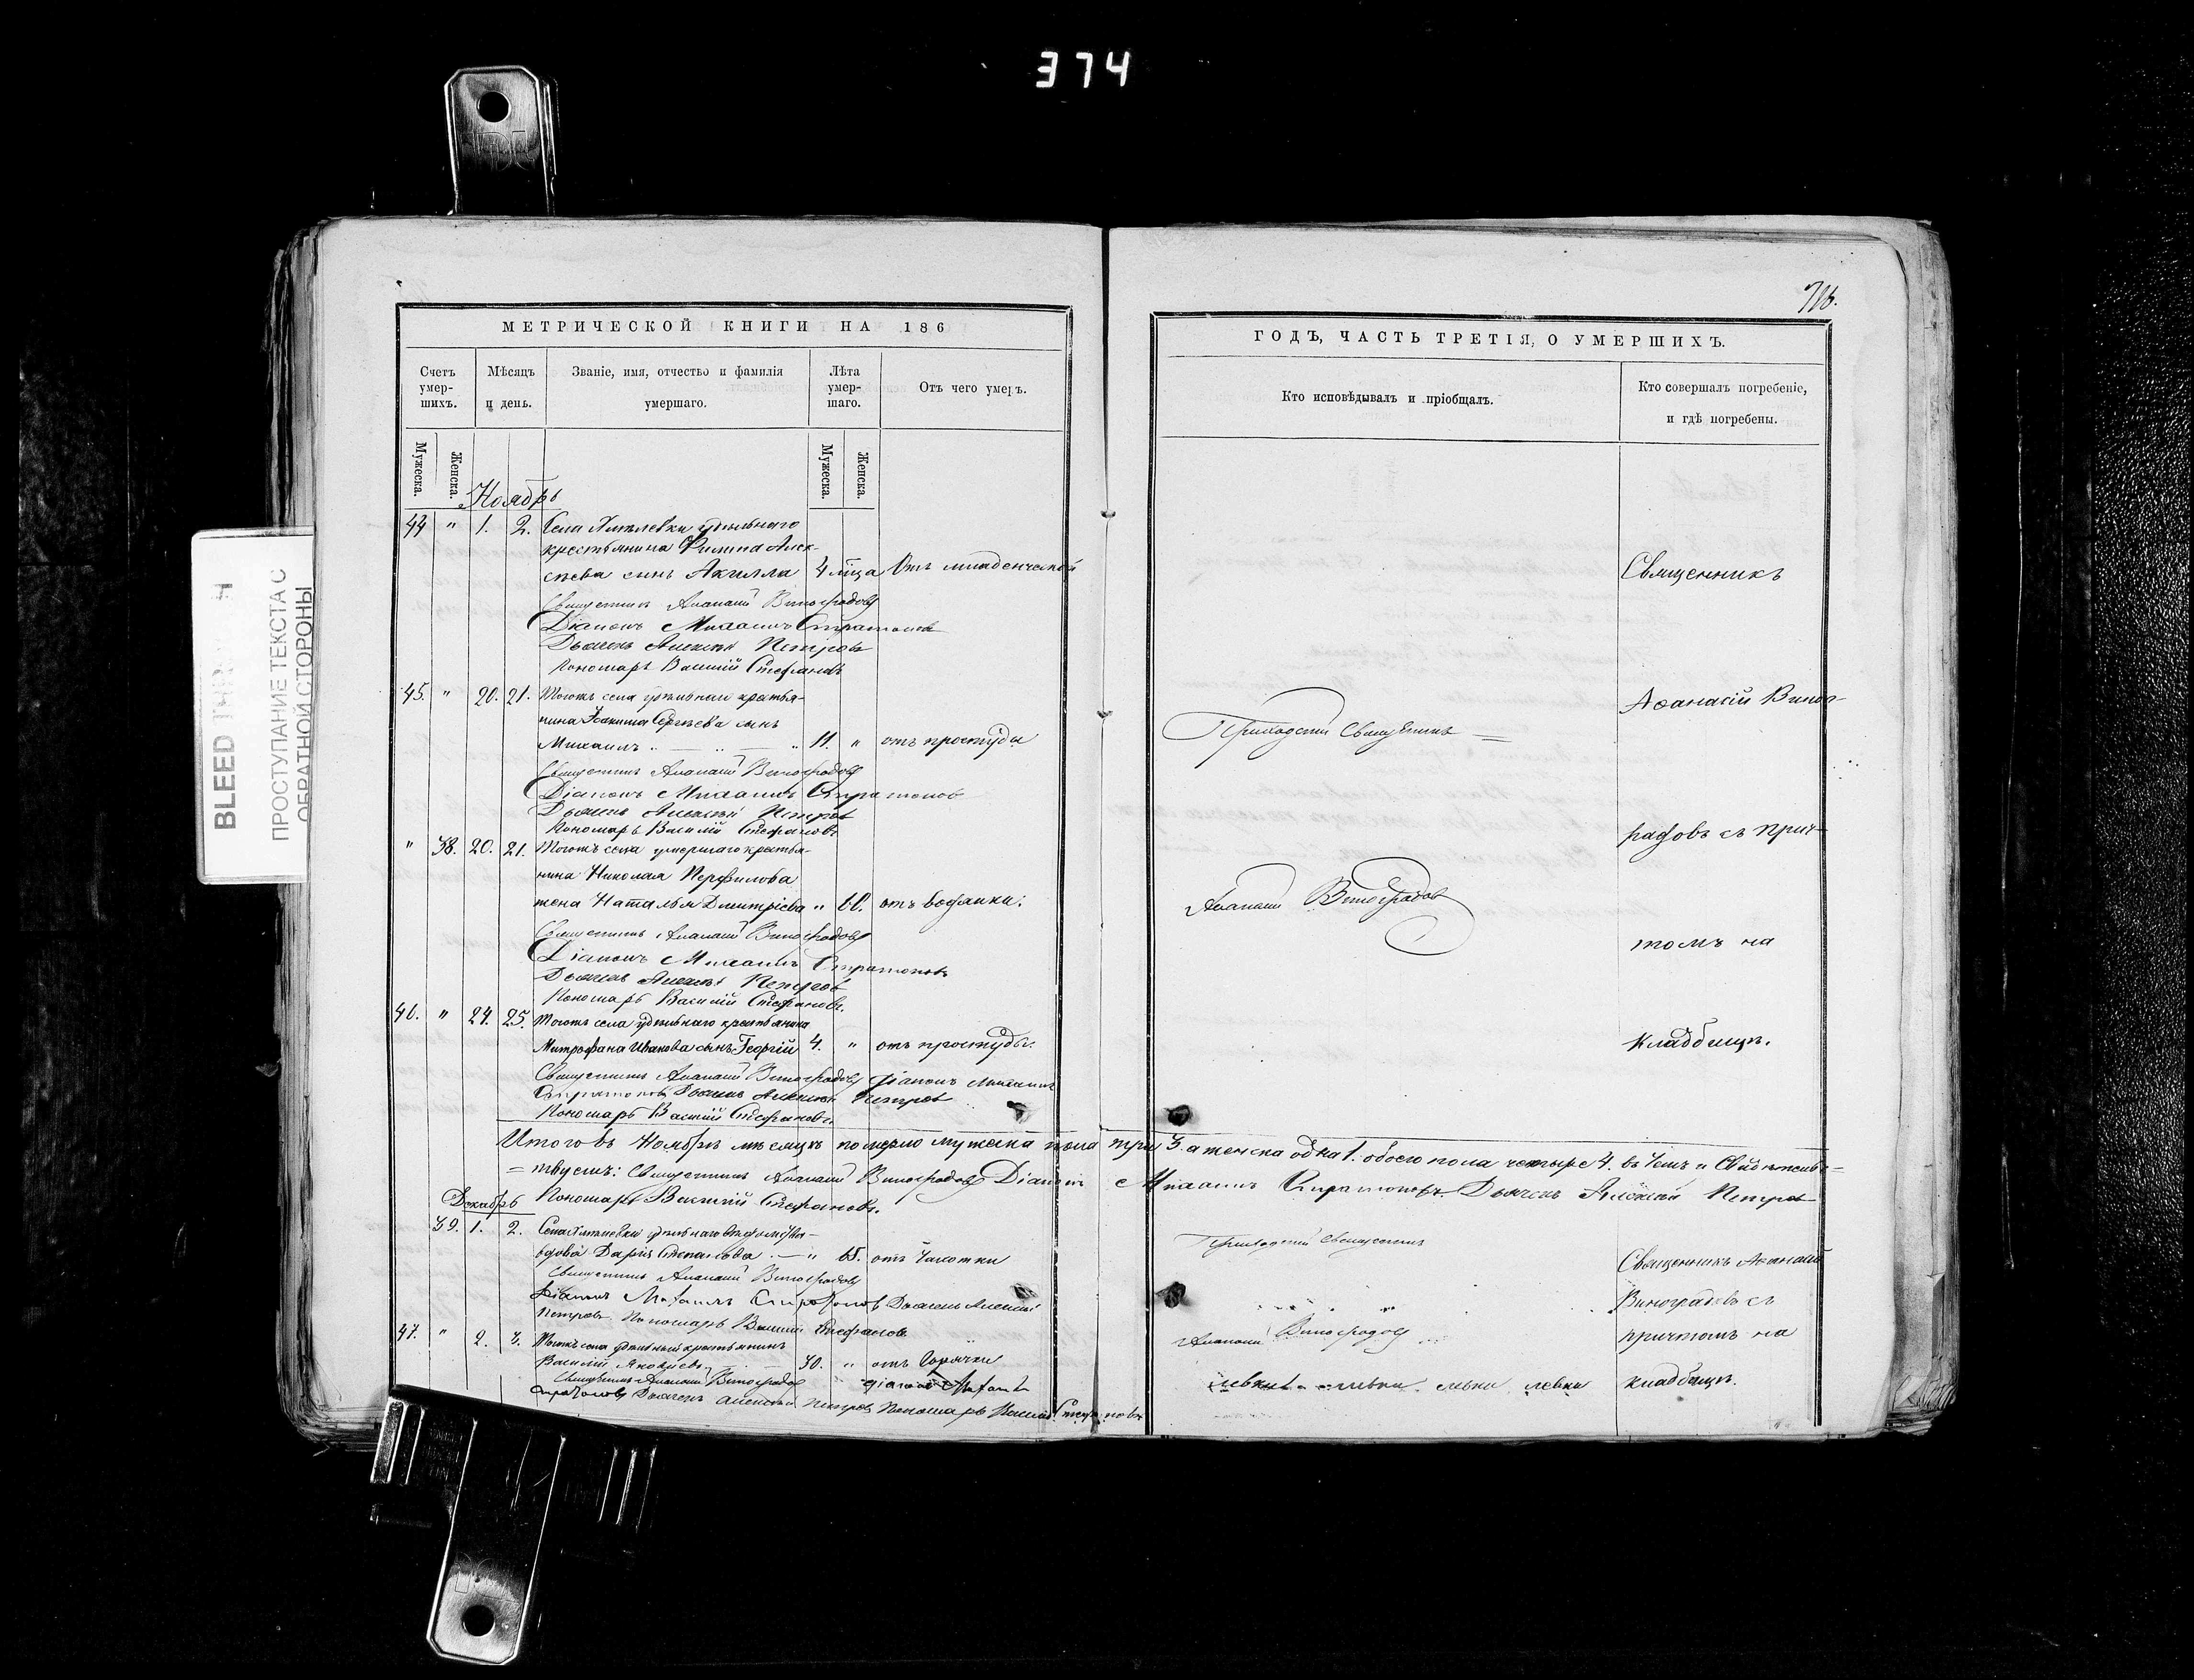 374
BLEED THR
ПРОСТУПАНИЕ ТЕКСТА С
ОБРАТНОЙ СТОРОНЫ
МЕТРИЧЕСКОЙ КНИГИ НА 186
Счетъ умер-шихъ.
Мѣсяцъ и день.
Званіе, имя, отчество и фамилія умершаго.
Лѣта умер-шаго.
Отъ чего умеръ.
Мужеска. Женска. Мужеска. Женска.
Ноябрь
44 " 1. 2. Села удѣльнаго
крестьянина Филипа Алек-
сѣева сынъ Акилла 4 мца Отъ младенческой
Священникъ Аѳанасій Виноградовъ
Діаконъ Михаилъ Стратоновъ
Дьячекъ Алексѣй Петровъ
Пономарь Василій Стефановъ
45. " 20. 21. Тогожъ села удѣльнаго крестья-
нина Іоакима Сергѣева сынъ
Михаилъ 11. " отъ простуды
Священникъ Аѳанасій Виноградовъ
Діаконъ Михаилъ Стратоновъ
Дьячекъ Алексѣй Петровъ
Пономарь Василій Стефановъ
" 38. 20. 21. Тогожъ села умершаго крестья-
нина Николая Перфилова
жена Наталья Димитріева " 66. отъ водянки.
Священникъ Аѳанасій Виноградовъ
Діаконъ Михаилъ Стратоновъ
Дьячекъ Алексѣй Петровъ
Пономарь Василій Стефановъ.
46. " 24. 25. Тогожъ села удѣльнаго крестьянина
Митрофана Иванова сынъ Георгій 4. " отъ простуды.
Священникъ Аѳанасій Виноградовъ Діаконъ Михаилъ
Стратоновъ Дьячекъ Алексѣй Петровъ
Пономарь Василій Стефановъ.
Итого въ Ноябрѣ мѣсяцѣ померло мужеска пола три 3. а женска одна 1. обоего пола четыре 4. въ чемъ и свидѣтельс-
=твуемъ: Священникъ Аѳанасій Виноградовъ Діаконъ Михаилъ Стратоновъ Дьячекъ Алексѣй Петровъ
Пономарь Василій Стефановъ.
Декабрь
39. 1. 2. Села удѣльнаго вѣдомства
вдова Дарія Степанова " 65. отъ чахотки
Священникъ Аѳанасій Виноградовъ
Діаконъ Михаилъ Стратоновъ Дьячекъ Алексѣй
Петровъ Пономарь Василій Стефановъ
47. " 2. 3. Тогожъ села удѣльный крестьянинъ
Василій Яковлевъ 30. " отъ горячки
Священникъ Аѳанасій Виноградовъ Діаконъ Михаилъ
Стратоновъ Дьячекъ Алексѣй Петровъ Пономарь Василій Стефановъ
ГОДЪ, ЧАСТЬ ТРЕТІЯ, О УМЕРШИХЪ.
Кто исповѣдывалъ и пріобщалъ.
Кто совершалъ погребеніе, и гдѣ погребены.
Священникъ
Аѳанасій Виног-
Приходскій Священникъ
радовъ съ прич-
Аѳанасій Виноградовъ
томъ на
кладбищѣ.
Приходскій Священникъ
Священникъ Аѳанасій
Виноградовъ съ
Аѳанасій Виноградовъ
причтомъ на
кладбищѣ.
левки левки